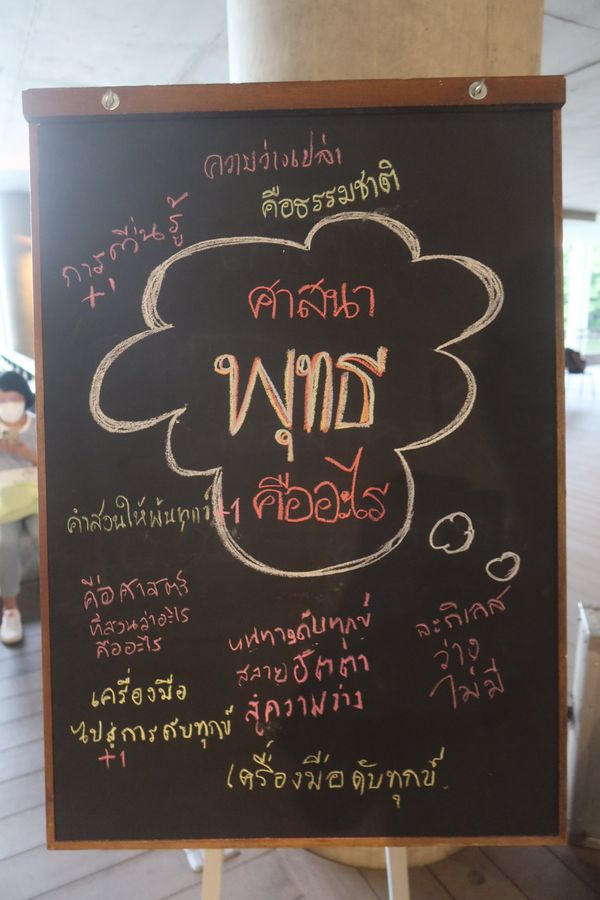 ความว่างเปล่า
คือธรรมชาติ
การตื่นรู้
+1
ศาสนา
พุทธ
คืออะไร
คำสอนให้พ้นทุกข์ +1
คือศาสตร์
ที่สอนว่าอะไร
คืออะไร
เครื่องมือ
ไปสู่การดับทุกข์
+1
ดับทุกข์
สลายอัตตา
สู่ความว่าง
ละกิเลส
ว่าง
ไม่มี
เครื่องมือดับทุกข์.